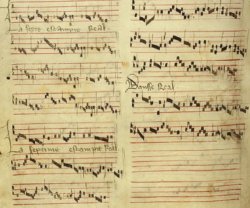 a sixte estampie Real
a septime estampie Real
Dansse Real